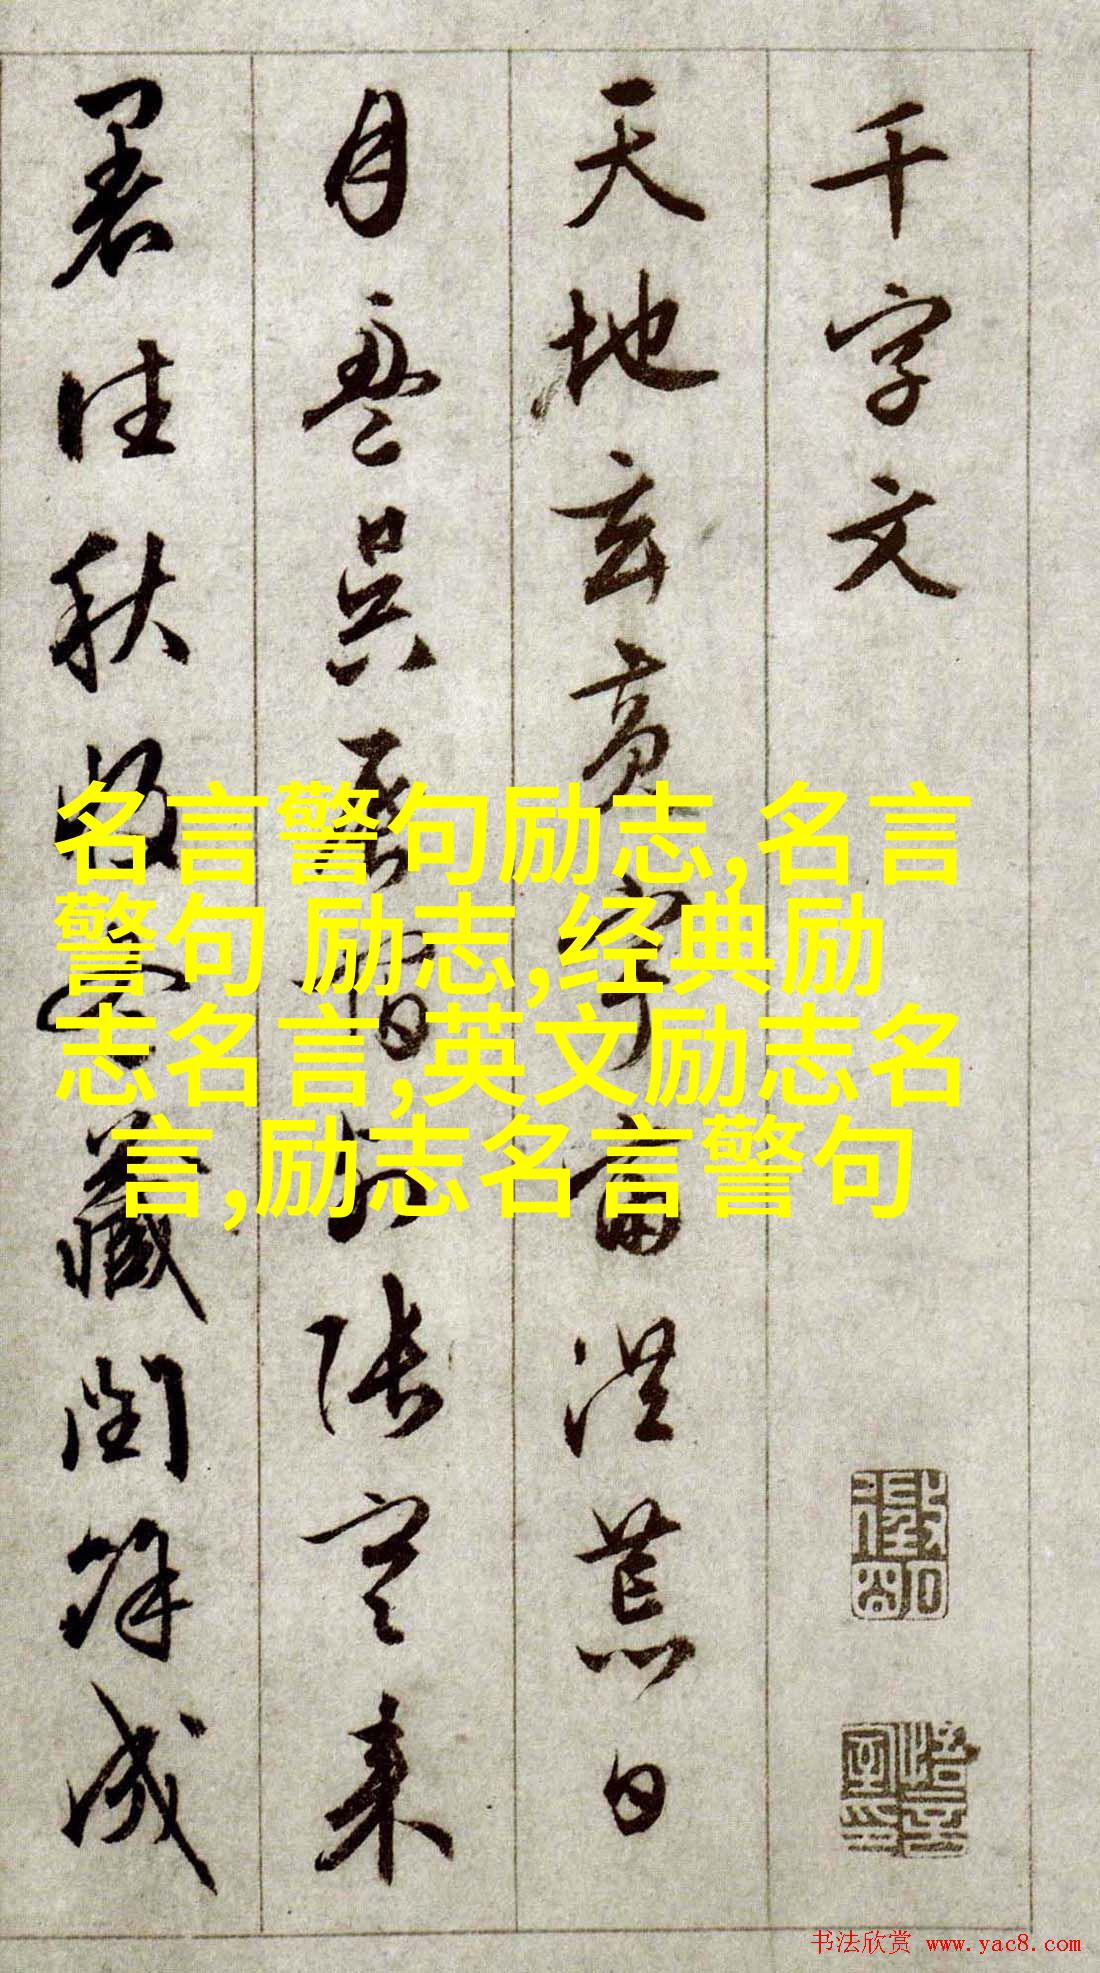 千字文
天地玄黄宇宙洪荒日
月盈昃辰宿列张寒来
暑往秋收冬藏闰余成
名言警句励志,名言
警句 励志,经典励
志名言,英文励志名
言,励志名言警句
书法欣赏 www.yac8.com